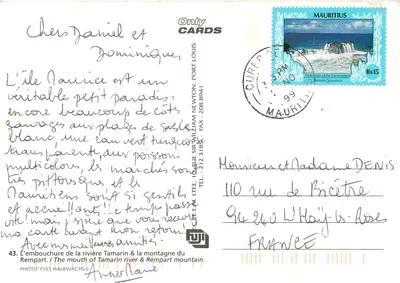 Only
CARDS
Chers Daniel et
Dominique,
L'île Maurice est un
véritable petit paradis
encore beaucoup de côtés
sauvages aux plages de sable
blanc une eau vert turquoise
transparente, aux poissons
multicolores, les marchés sont
très pittoresques et les
Mauriciens sont si gentils
et accueillants!! le temps passe
vite mais j'espère que vous recevrez
ma carte avant mon retour
Avec mes meilleures amitiés
43. L'embouchure de la rivière Tamarin & la montagne du
Rempart. / The mouth of Tamarin river & Rempart mountain.
PHOTO YVES HALBWACHS
WILLIAM NEWTON, PORT LOUIS
FAX - 208 8941
MAURITIUS
Rs15
99
Monsieur et Madame DENIS
110 rue de Bicêtre
94 240 L'Haÿ-les-Roses
FRANCE